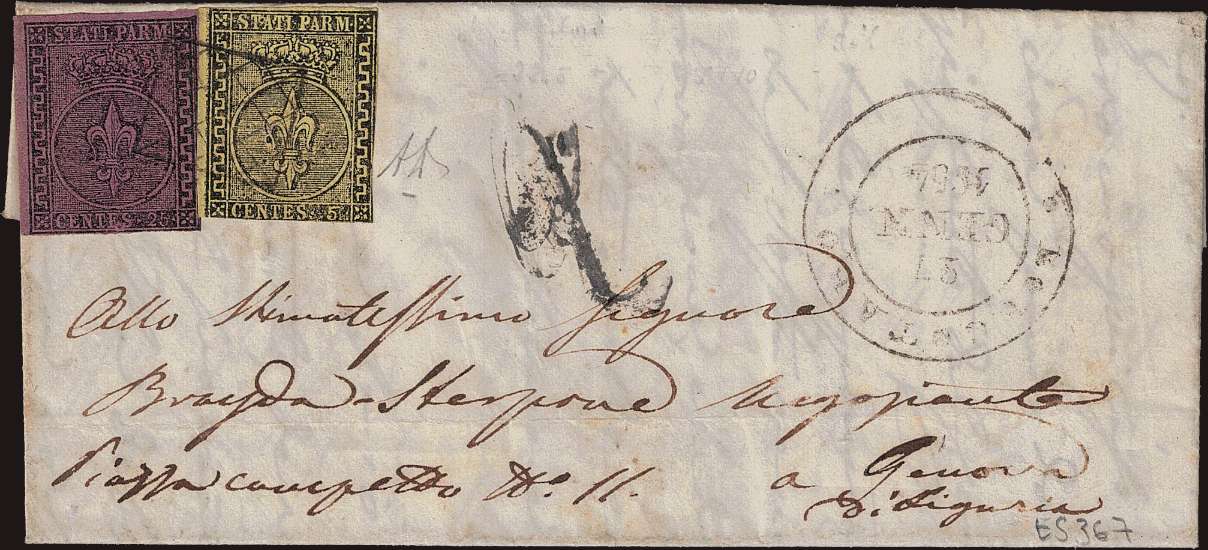 STATI PARM.
CENTES. 25
STATI PARM.
CENTES. 5
1854
GENN
27
Allo Stimatissimo Signore
Brayda-Sterpone Negoziante
Piazza campetto No. 11.
a Genova
Di Liguria
ES367